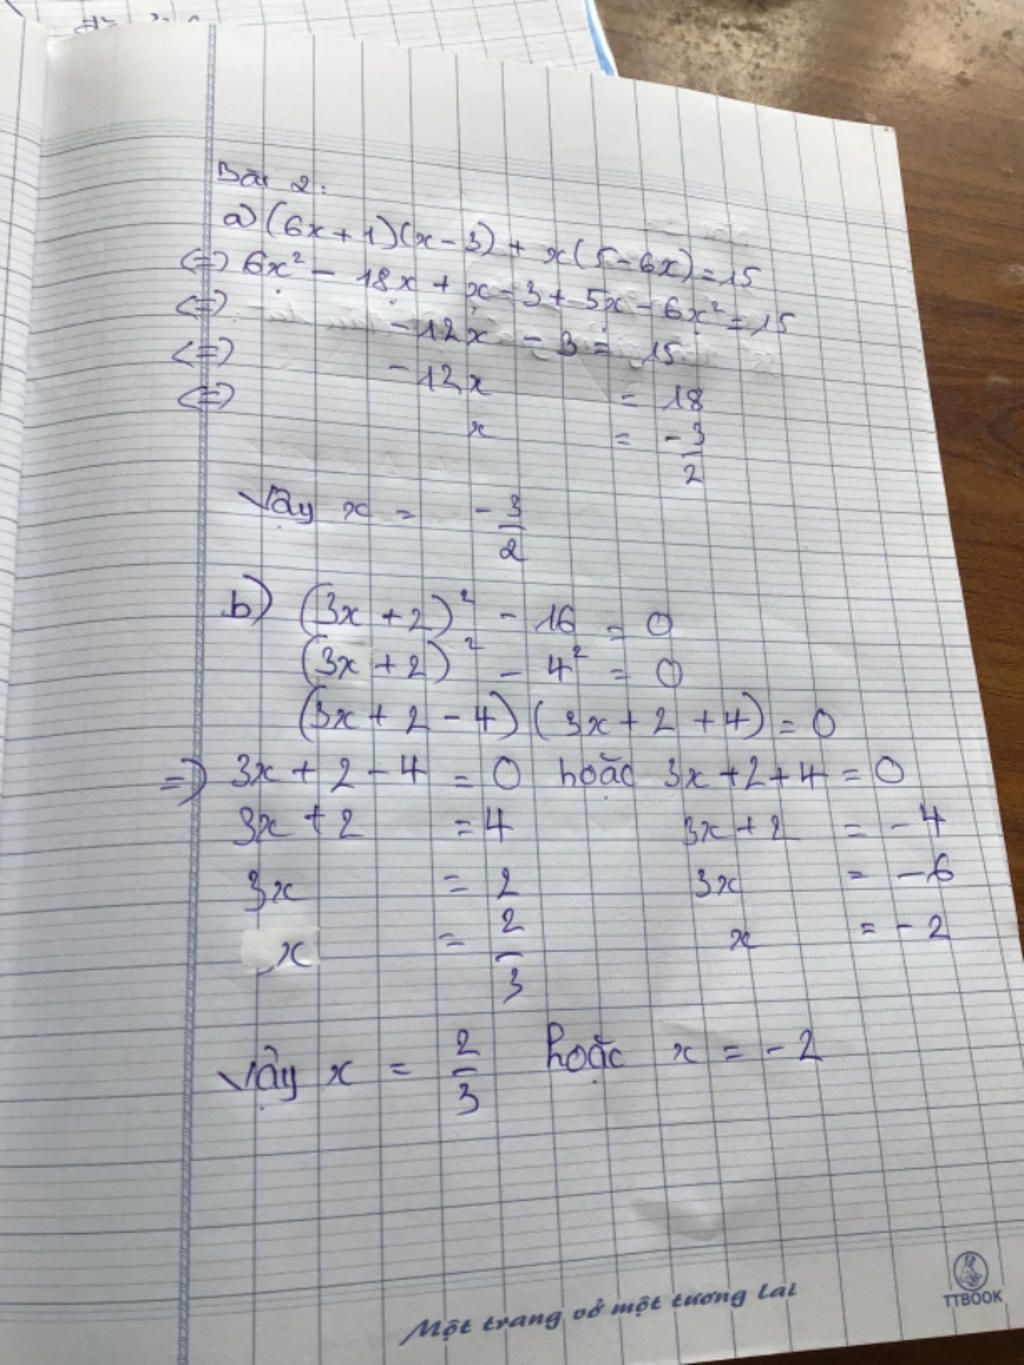 Bài 2:
a) (6x + 1)(x - 3) + x(5 - 6x) = 15
<=> 6x² - 18x + x - 3 + 5x - 6x² = 15
<=> -12x - 3 = 15
<=> -12x = 18
<=> x = -3/2
Vậy x = -3/2
b) (3x + 2)² - 16 = 0
(3x + 2)² - 4² = 0
(3x + 2 - 4)(3x + 2 + 4) = 0
=> 3x + 2 - 4 = 0 hoặc 3x + 2 + 4 = 0
3x + 2 = 4 3x + 2 = -4
3x = 2 3x = -6
x = 2/3 x = -2
Vậy x = 2/3 hoặc x = -2
Một trang vở một tương lai
TTBOOK